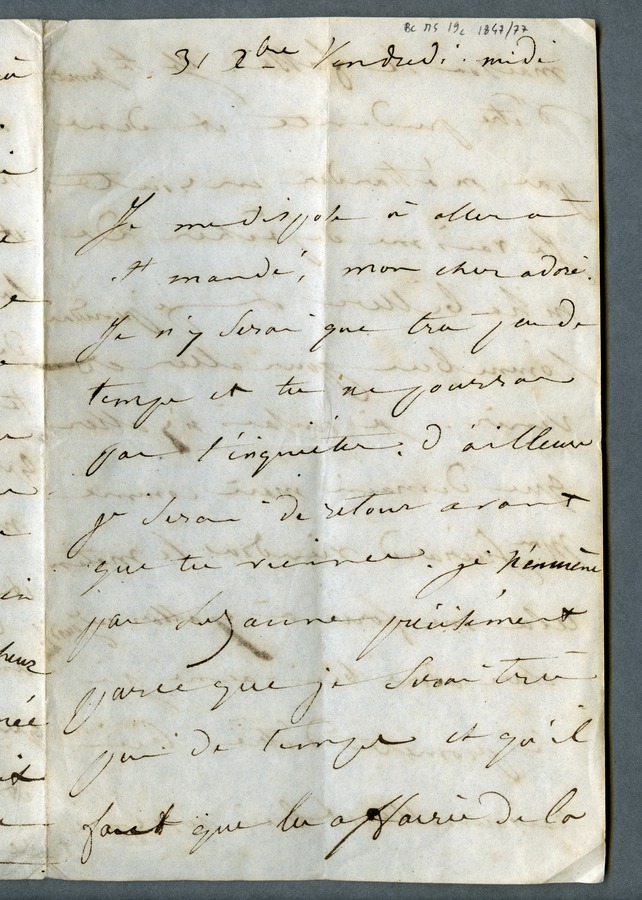 BC MS 19c 1847/77
31 Xbre Vendredi. midi
Je me dispose à aller à
St mandé, mon cher adoré.
Je n'y serai que très peu de
temps et tu ne pourras
pas t'inquiéter. D'ailleurs
je serai de retour avant
que tu viennes. je n'emmène
pas Suzanne précisément
parce que je serai très
peu de temps et qu'il
faut que les affaires de la